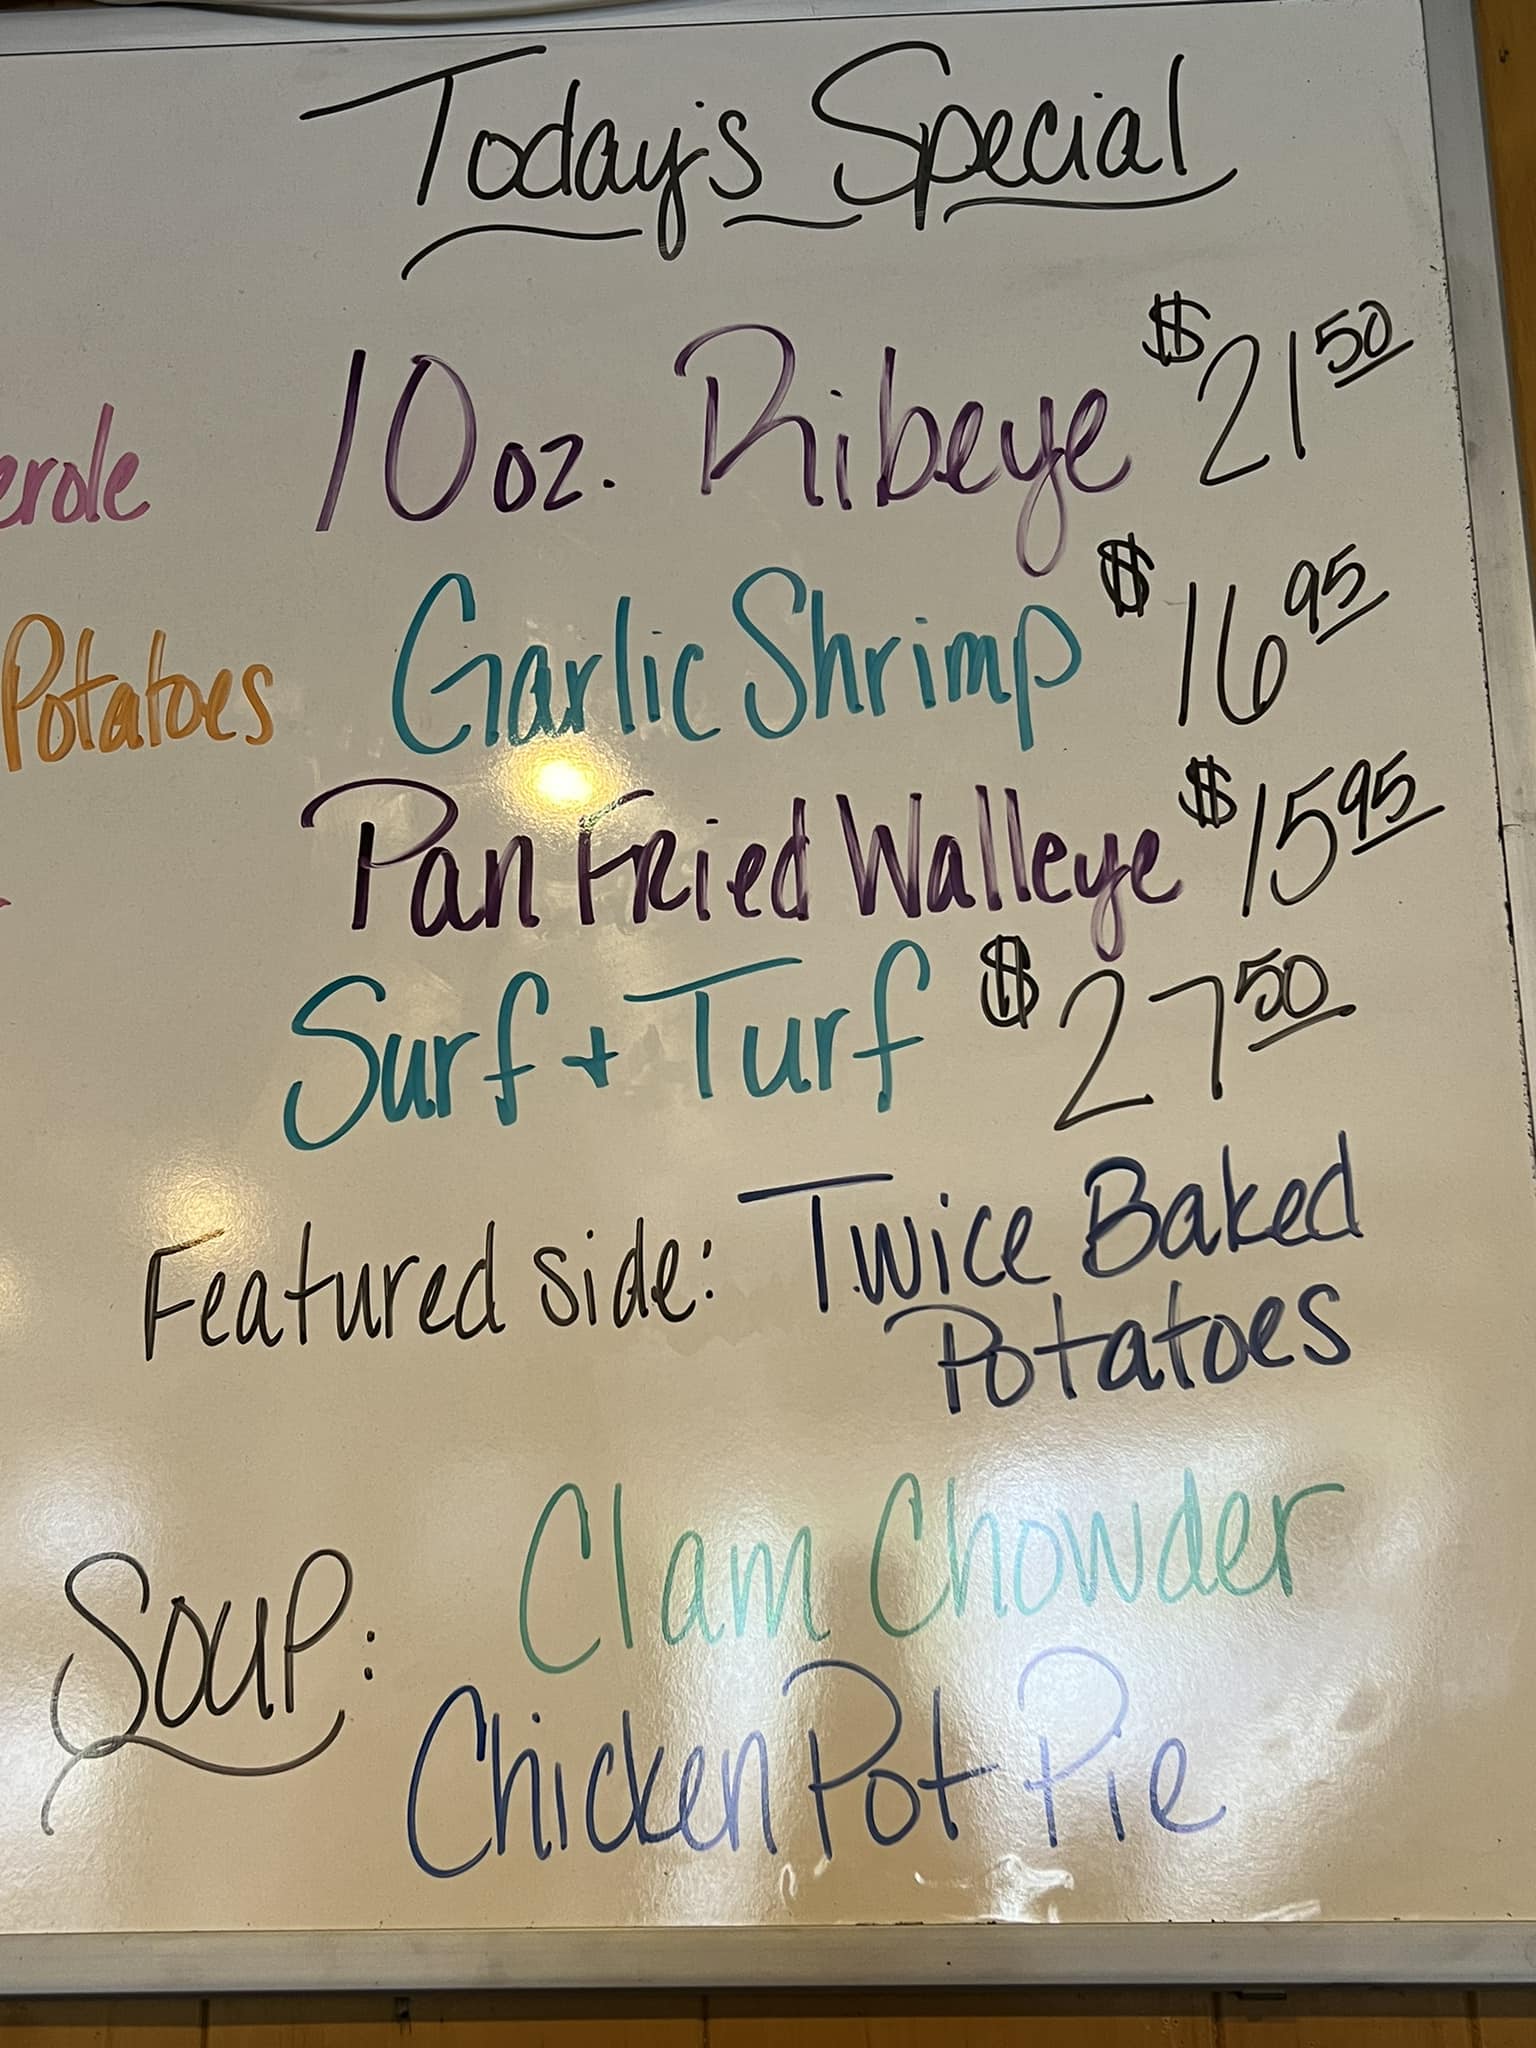 Today's Special
10 oz. Ribeye $21 50
erole
Garlic Shrimp $16 95
Potatoes
Pan Fried Walleye $15 95
Surf + Turf $27 50
Featured side: Twice Baked
Potatoes
Soup: Clam Chowder
Chicken Pot Pie